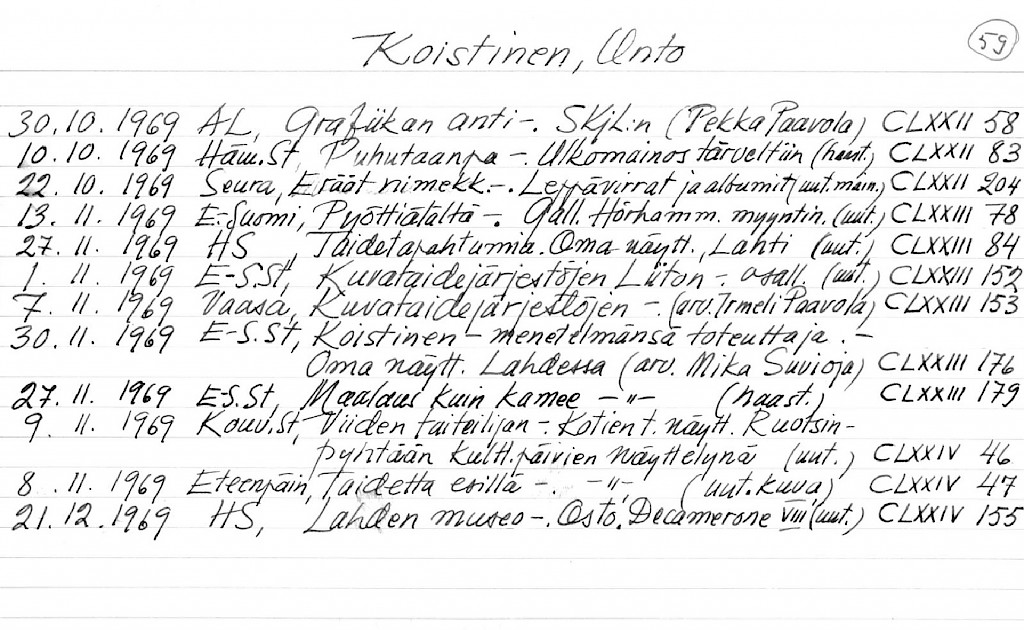 Koistinen, Unto 59
30.10.1969 AL, Grafiikan anti-. SKjL:n (Pekka Paavola) CLXXII 58
10.10.1969 Häm.St, Puhutaanpa -. Ulkomainos tärveltiin (haast.) CLXXII 83
22.10.1969 Seura, Eräät nimekk.-. Leppävirrat ja albumit (uut. main.) CLXXII 204
13.11.1969 E.-Suomi, -. Gall. Hörhamm. myyntin. (uut.) CLXXIII 78
27.11.1969 HS, Taidetapahtumia. Oma näytt., Lahti (uut.) CLXXIII 84
1.11.1969 E-S.St, Kuvataidejärjestöjen Liiton - osall. (uut.) CLXXIII 152
7.11.1969 Vaasa, Kuvataidejärjestöjen -. (arv. Irmeli Paavola) CLXXIII 153
30.11.1969 E-S.St, Koistinen - menetelmänsä toteuttaja .-
Oma näytt. Lahdessa (arv. Mika Suvioja) CLXXIII 176
27.11.1969 E-S.St, Maalaus kuin kamee -"- (haast.) CLXXIII 179
9.11.1969 Kouv.St, Viiden taiteilijan -. Kotien t. näytt. Ruotsin-
pyhtään kultt.päivien näyttelynä (uut.) CLXXIV 46
8.11.1969 Eteenpäin, Taidetta esillä -. -"- (uut. kuva) CLXXIV 47
21.12.1969 HS, Lahden museo -. Osto. Decamerone VIII (uut.) CLXXIV 155